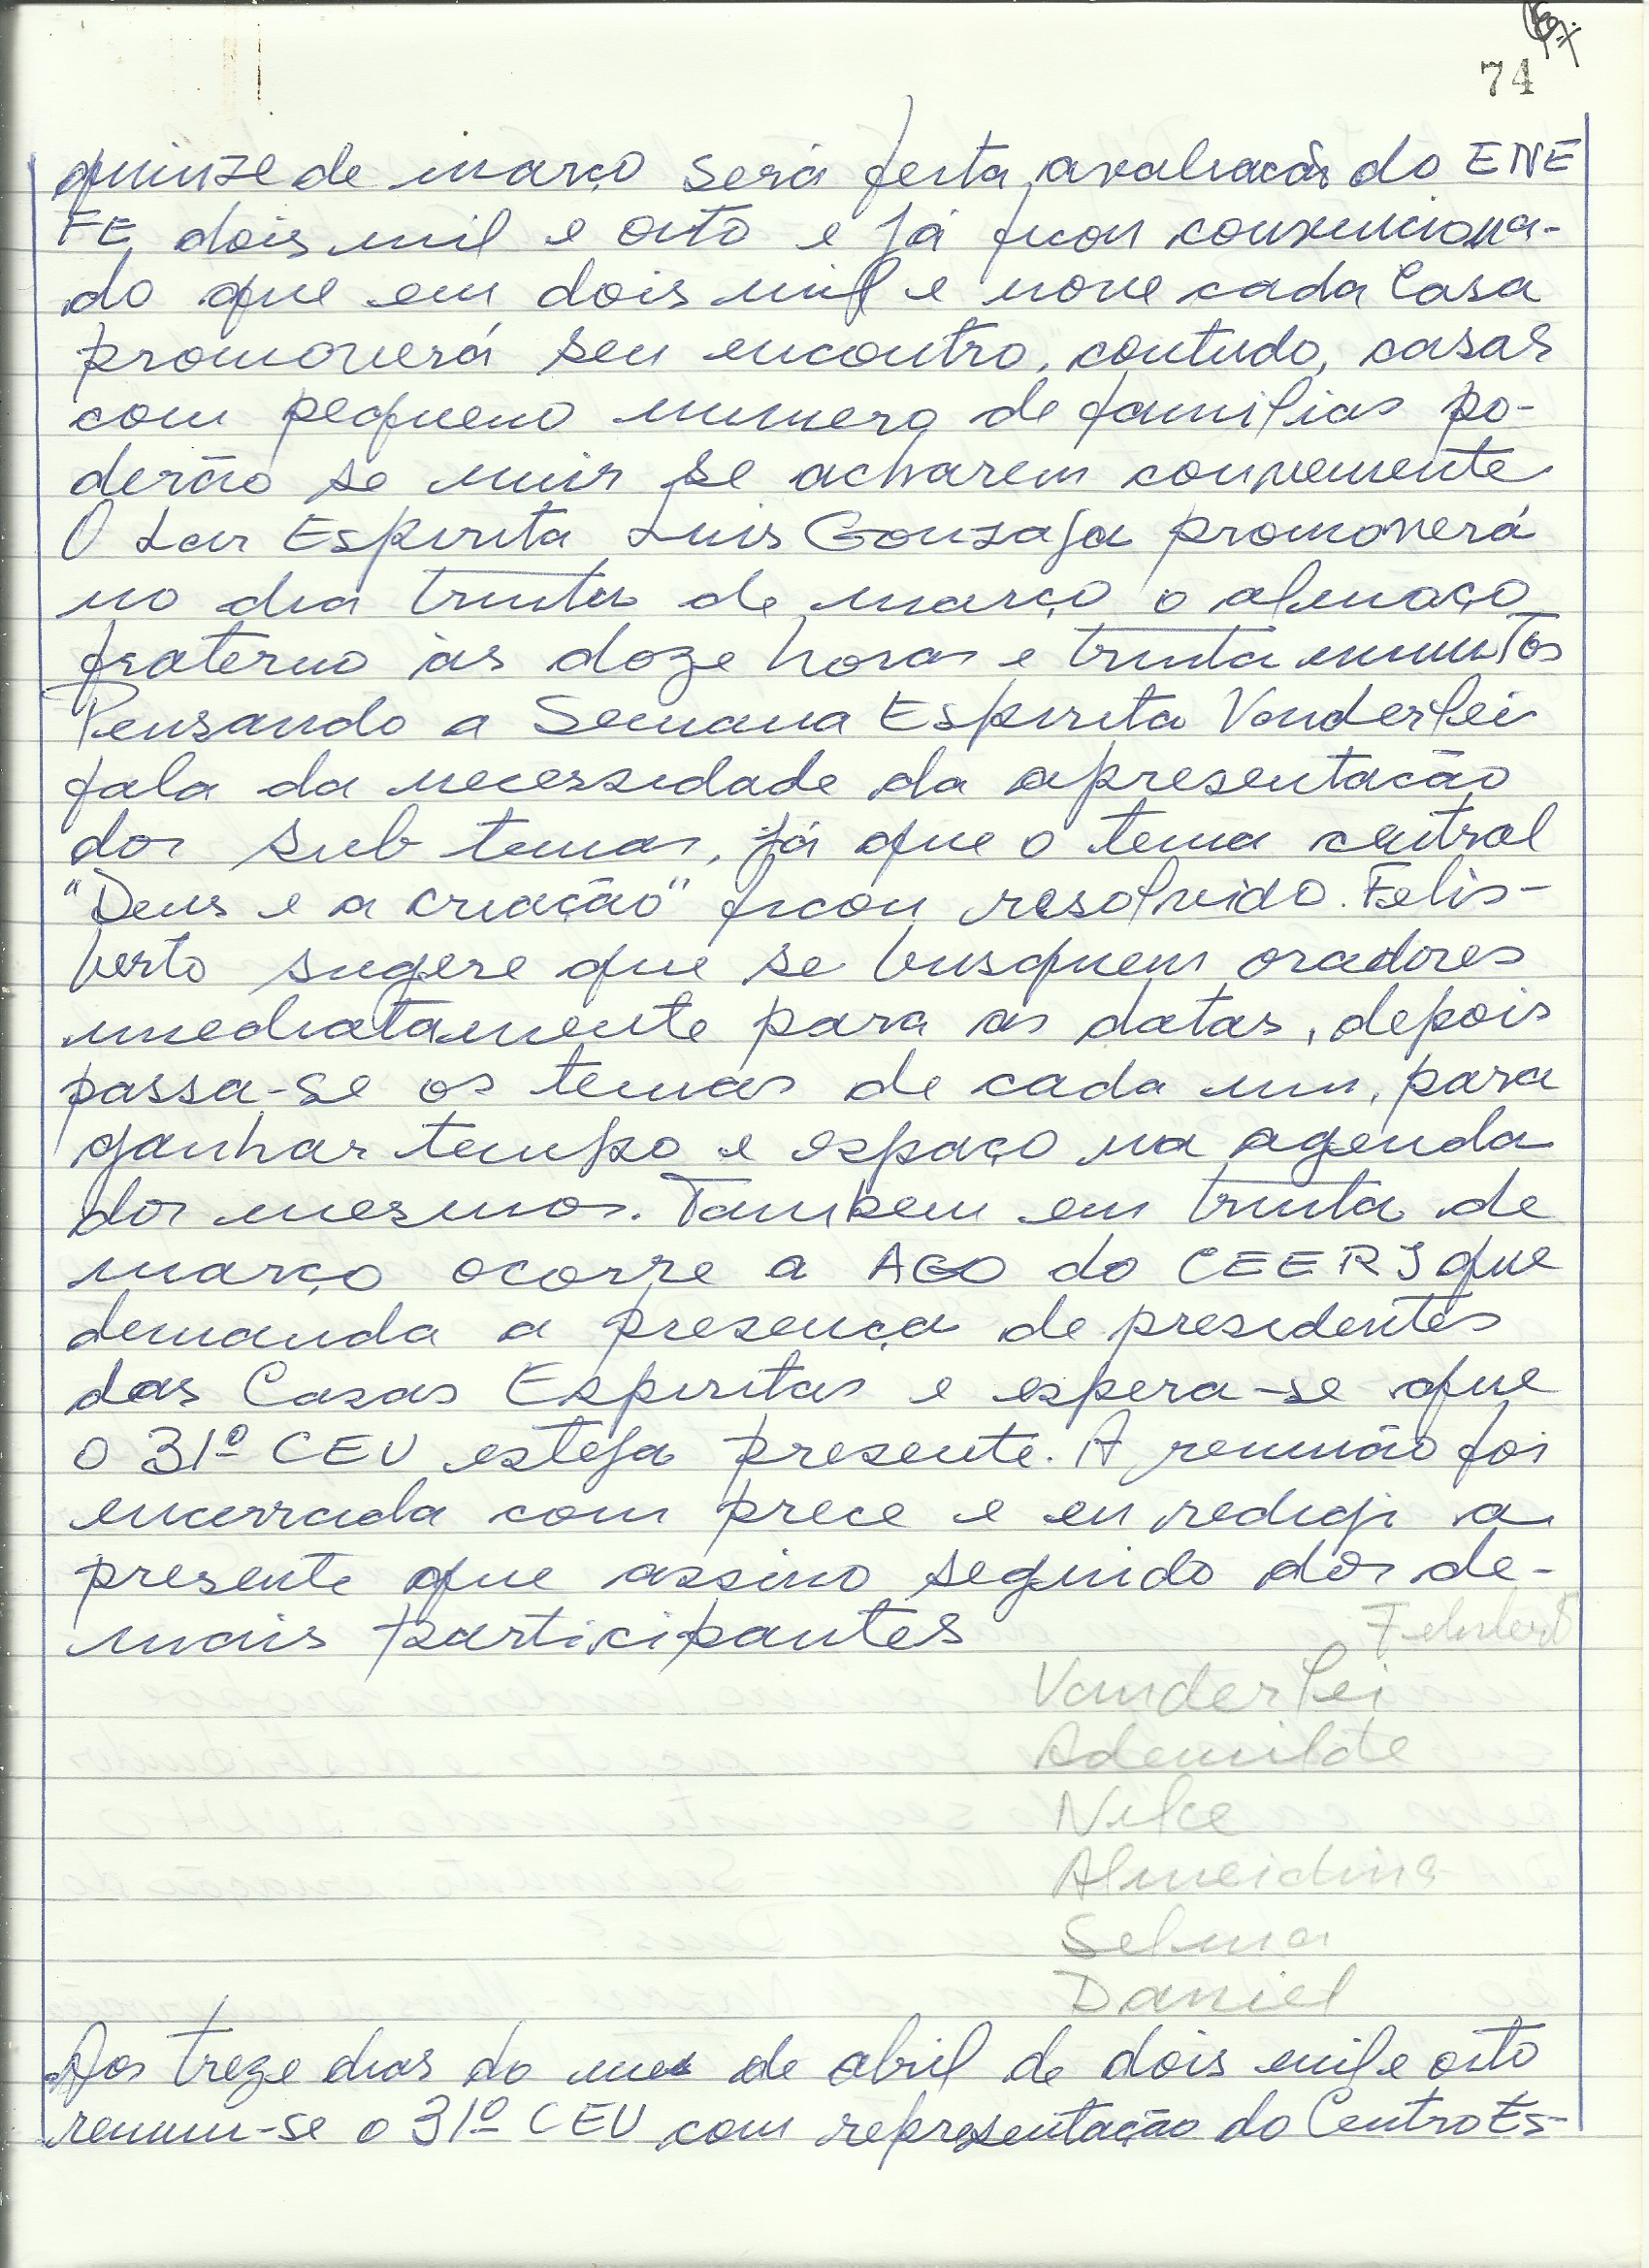 74
quinze de março será feita avaliação do ENE
FE dois mil e oito e já ficou convenciona-
do que em dois mil e nove cada Casa
promoverá seu encontro, contudo, casas
com pequeno numero de familias po-
derão se unir se acharem conveniente
O Lar Espirita Luis Gonzaga promoverá
no dia trinta de março o almoço
fraterno às doze horas e trinta minutos
Pensando a Semana Espirita Vanderlei
fala da necessidade da apresentação
dos sub temas, já que o tema central
"Deus e a criação" ficou resolvido. Felis-
berto sugere que se busquem oradores
imediatamente para as datas, depois
passa-se os temas de cada um, para
ganhar tempo e espaço na agenda
dos mesmos. Tambem em trinta de
março ocorre a AGO do CEERJ que
demanda a presença de presidentes
das Casas Espiritas e espera-se que
o 31º CEU esteja presente. A reunião foi
encerrada com prece e eu redigi a
presente que assino seguido dos de-
mais participantes
Vanderlei
Ademilde
Nilce
Almeidina
Selma
Daniel
Aos treze dias do mes de abril de dois mil e oito
reuniu-se o 31º CEU com representação do Centro Es-